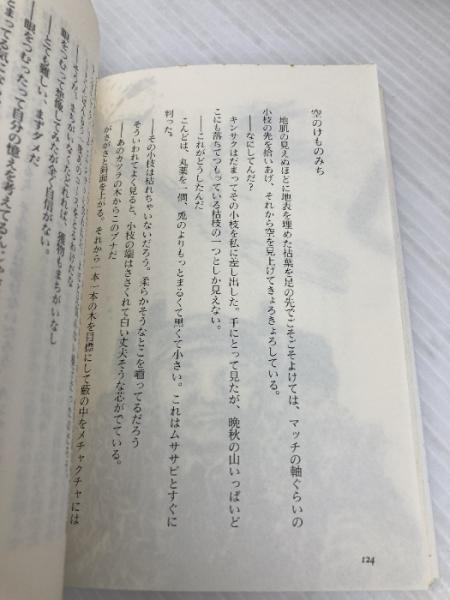 空のけものみち
地肌の見えぬほどに地表を埋めた枯葉を足の先でごそごそよけては、マッチの軸ぐらいの
小枝の先を拾いあげ、それから空を見上げてきょろきょろしている。
――なにしてんだ？
キンサクはだまってその小枝を私に差し出した。手にとって見たが、晩秋の山いっぱいど
こにも落ちてつもっている枯枝の一つとしか見えない。
――これがどうしたんだ
こんどは、丸薬を一個、兎のよりもっとまるくて黒くて小さい。これはムササビとすぐに
判った。
――その小枝は枯れちゃいないだろう。柔らかそうなとこを齧ってるだろう
そういわれてよく見ると、小枝の端はささくれて白い丈夫そうな芯がでている。
――あのカツラの木からこのブナだ
がさがさと斜面を上がる。それから一本一本の木を目標にして藪の中をメチャクチャには
獲物もまちがいなし
眼をつむって想像してみたが全く自信がない。
――とても難しい、まずダメだ。
――眼をつむったって自分の憶えを考えてるんじゃ
とまってる気に
124